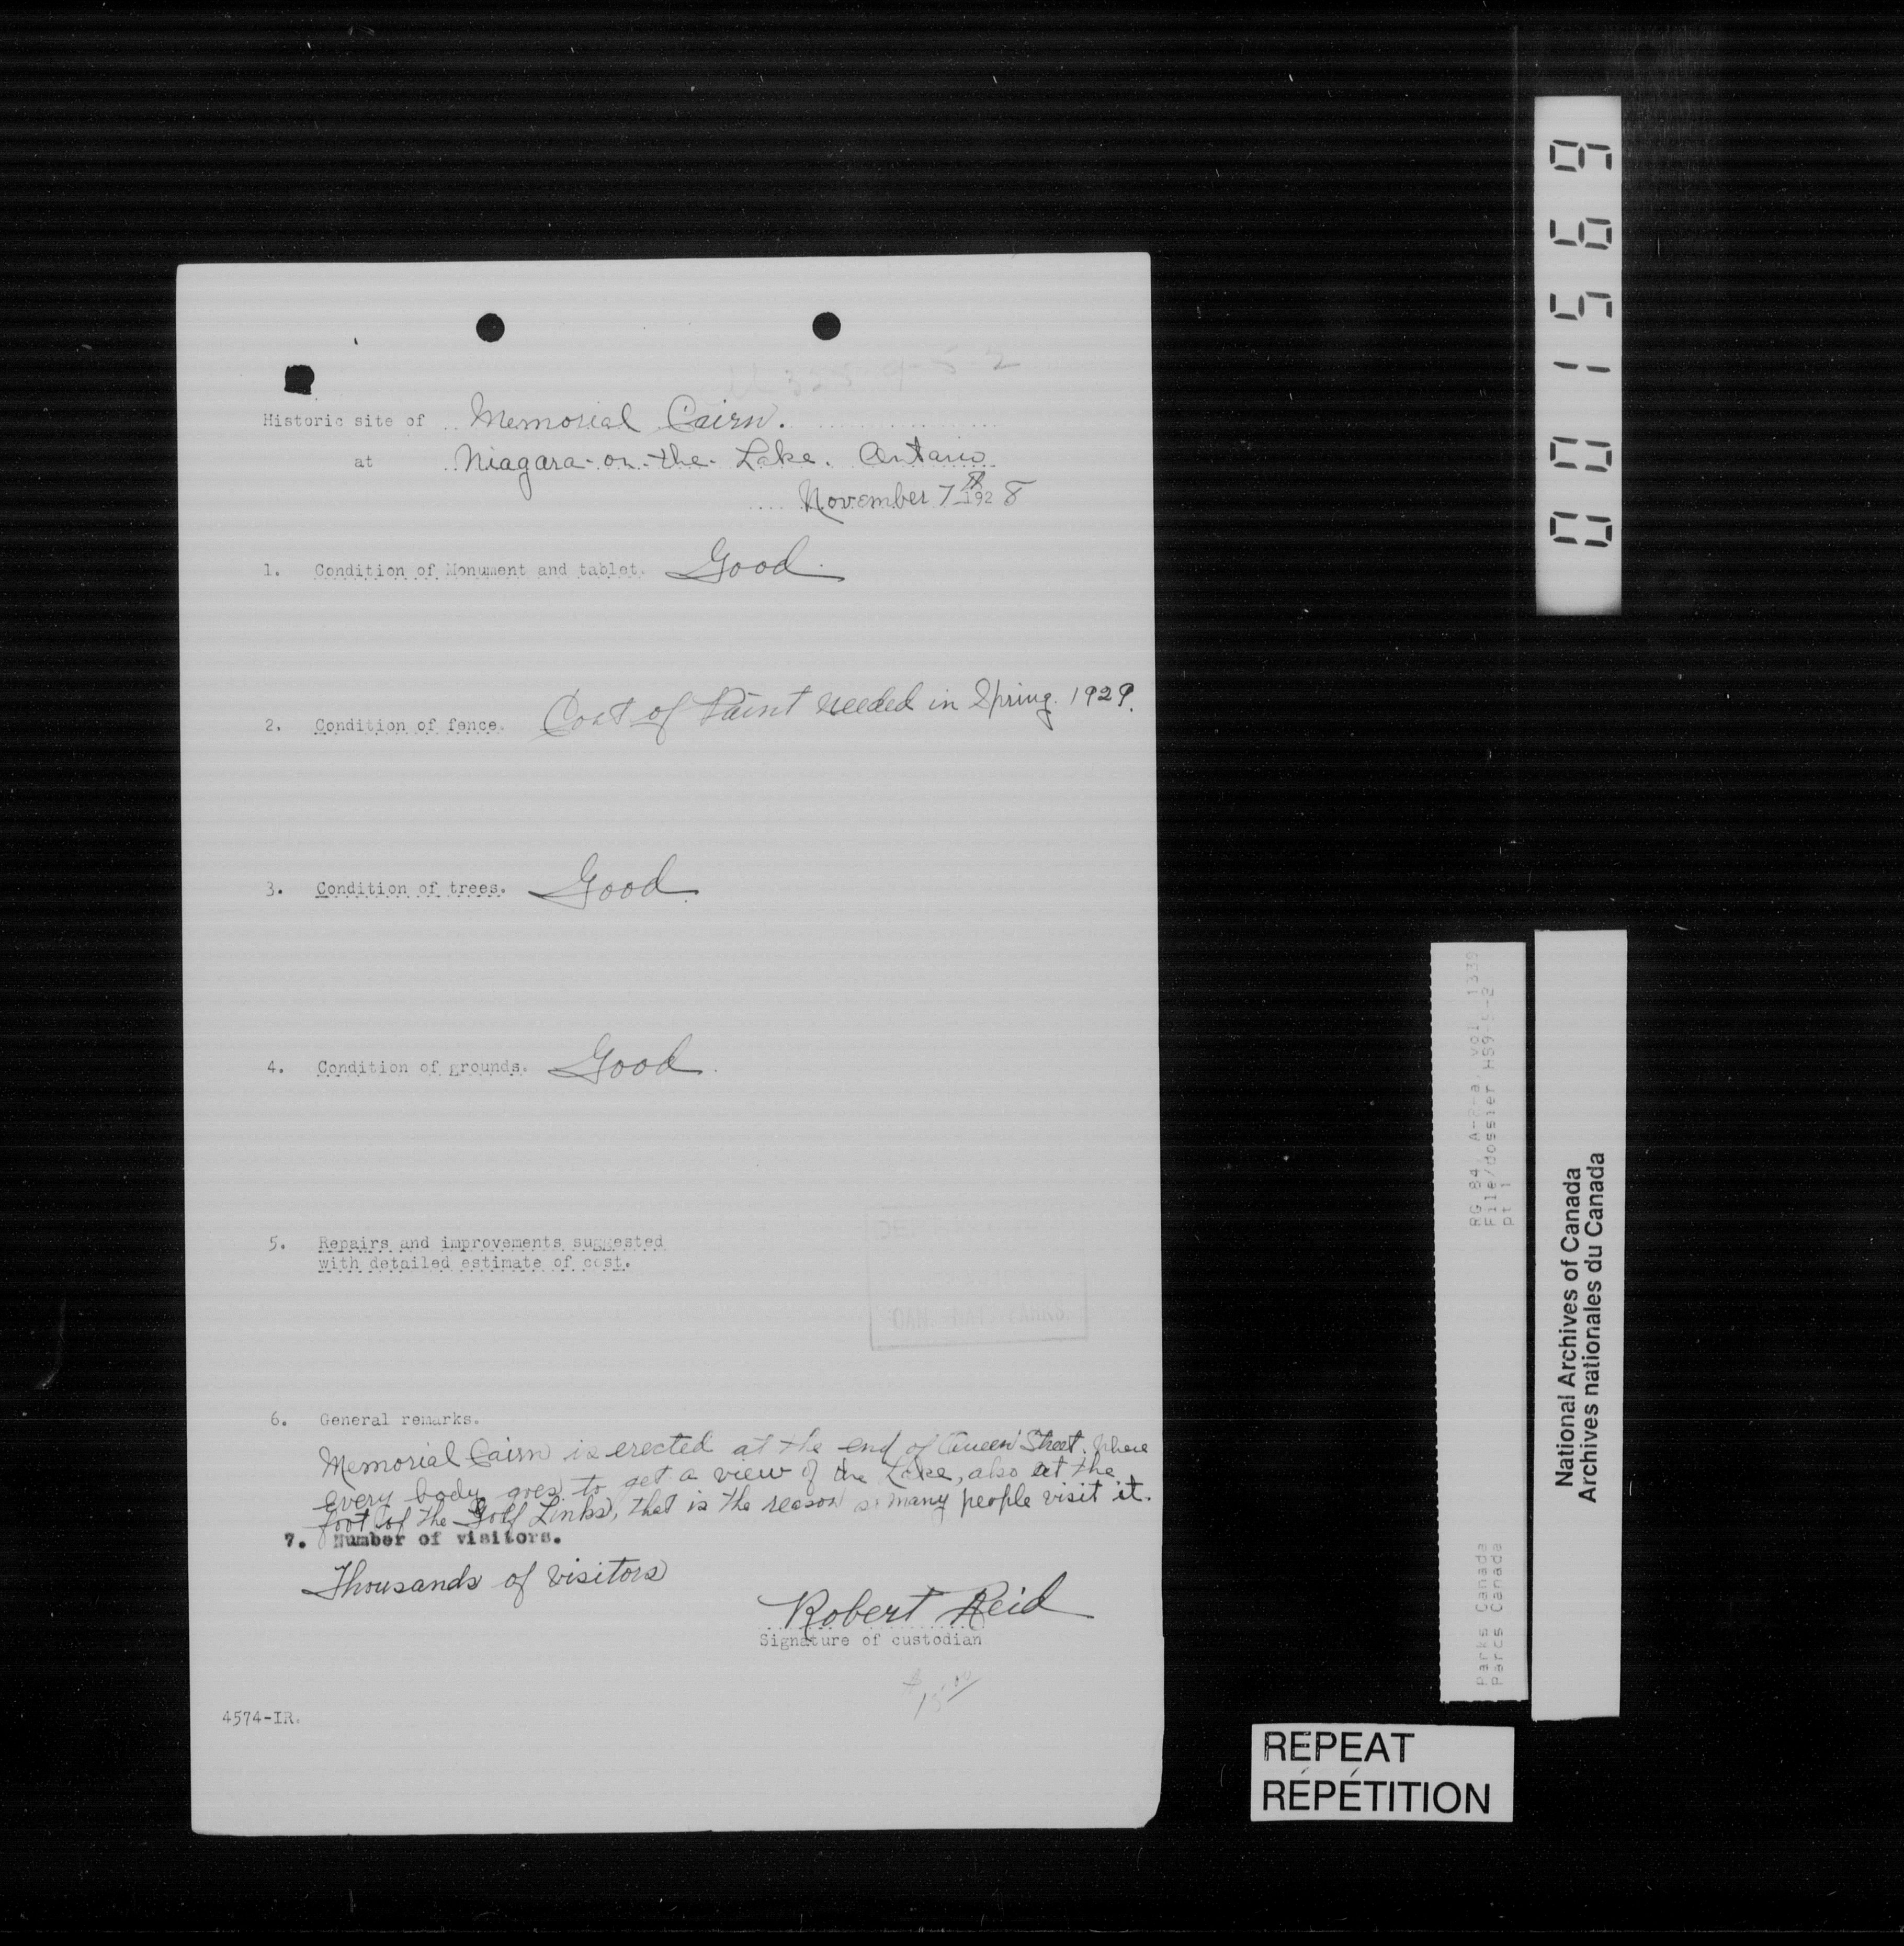 325 9-5-2
Historic site of Memorial Cairn.
at Niagara-on-the-Lake. Ontario
November 7th 1928
1. Condition of Monument and tablet. Good.
2. Condition of fence. Coat of Paint needed in Spring. 1929.
3. Condition of trees. Good.
4. Condition of grounds. Good.
5. Repairs and improvements suggested
with detailed estimate of cost.
CAN. NAT. PARKS.
6. General remarks.
Memorial Cairn is erected at the end of Queen Street. Where
every body goes to get a view of the Lake, also at the
foot of the Golf Links, that is the reason so many people visit it.
7. Number of visitors.
Thousands of visitors
Robert Reid
Signature of custodian
$15.00
4574-IR.
001569
RG 84, A-2-a, vol. 1339
File/dossier HS9-5-2
pt 1
Parks Canada
Parcs Canada
National Archives of Canada
Archives nationales du Canada
REPEAT
RÉPÉTITION